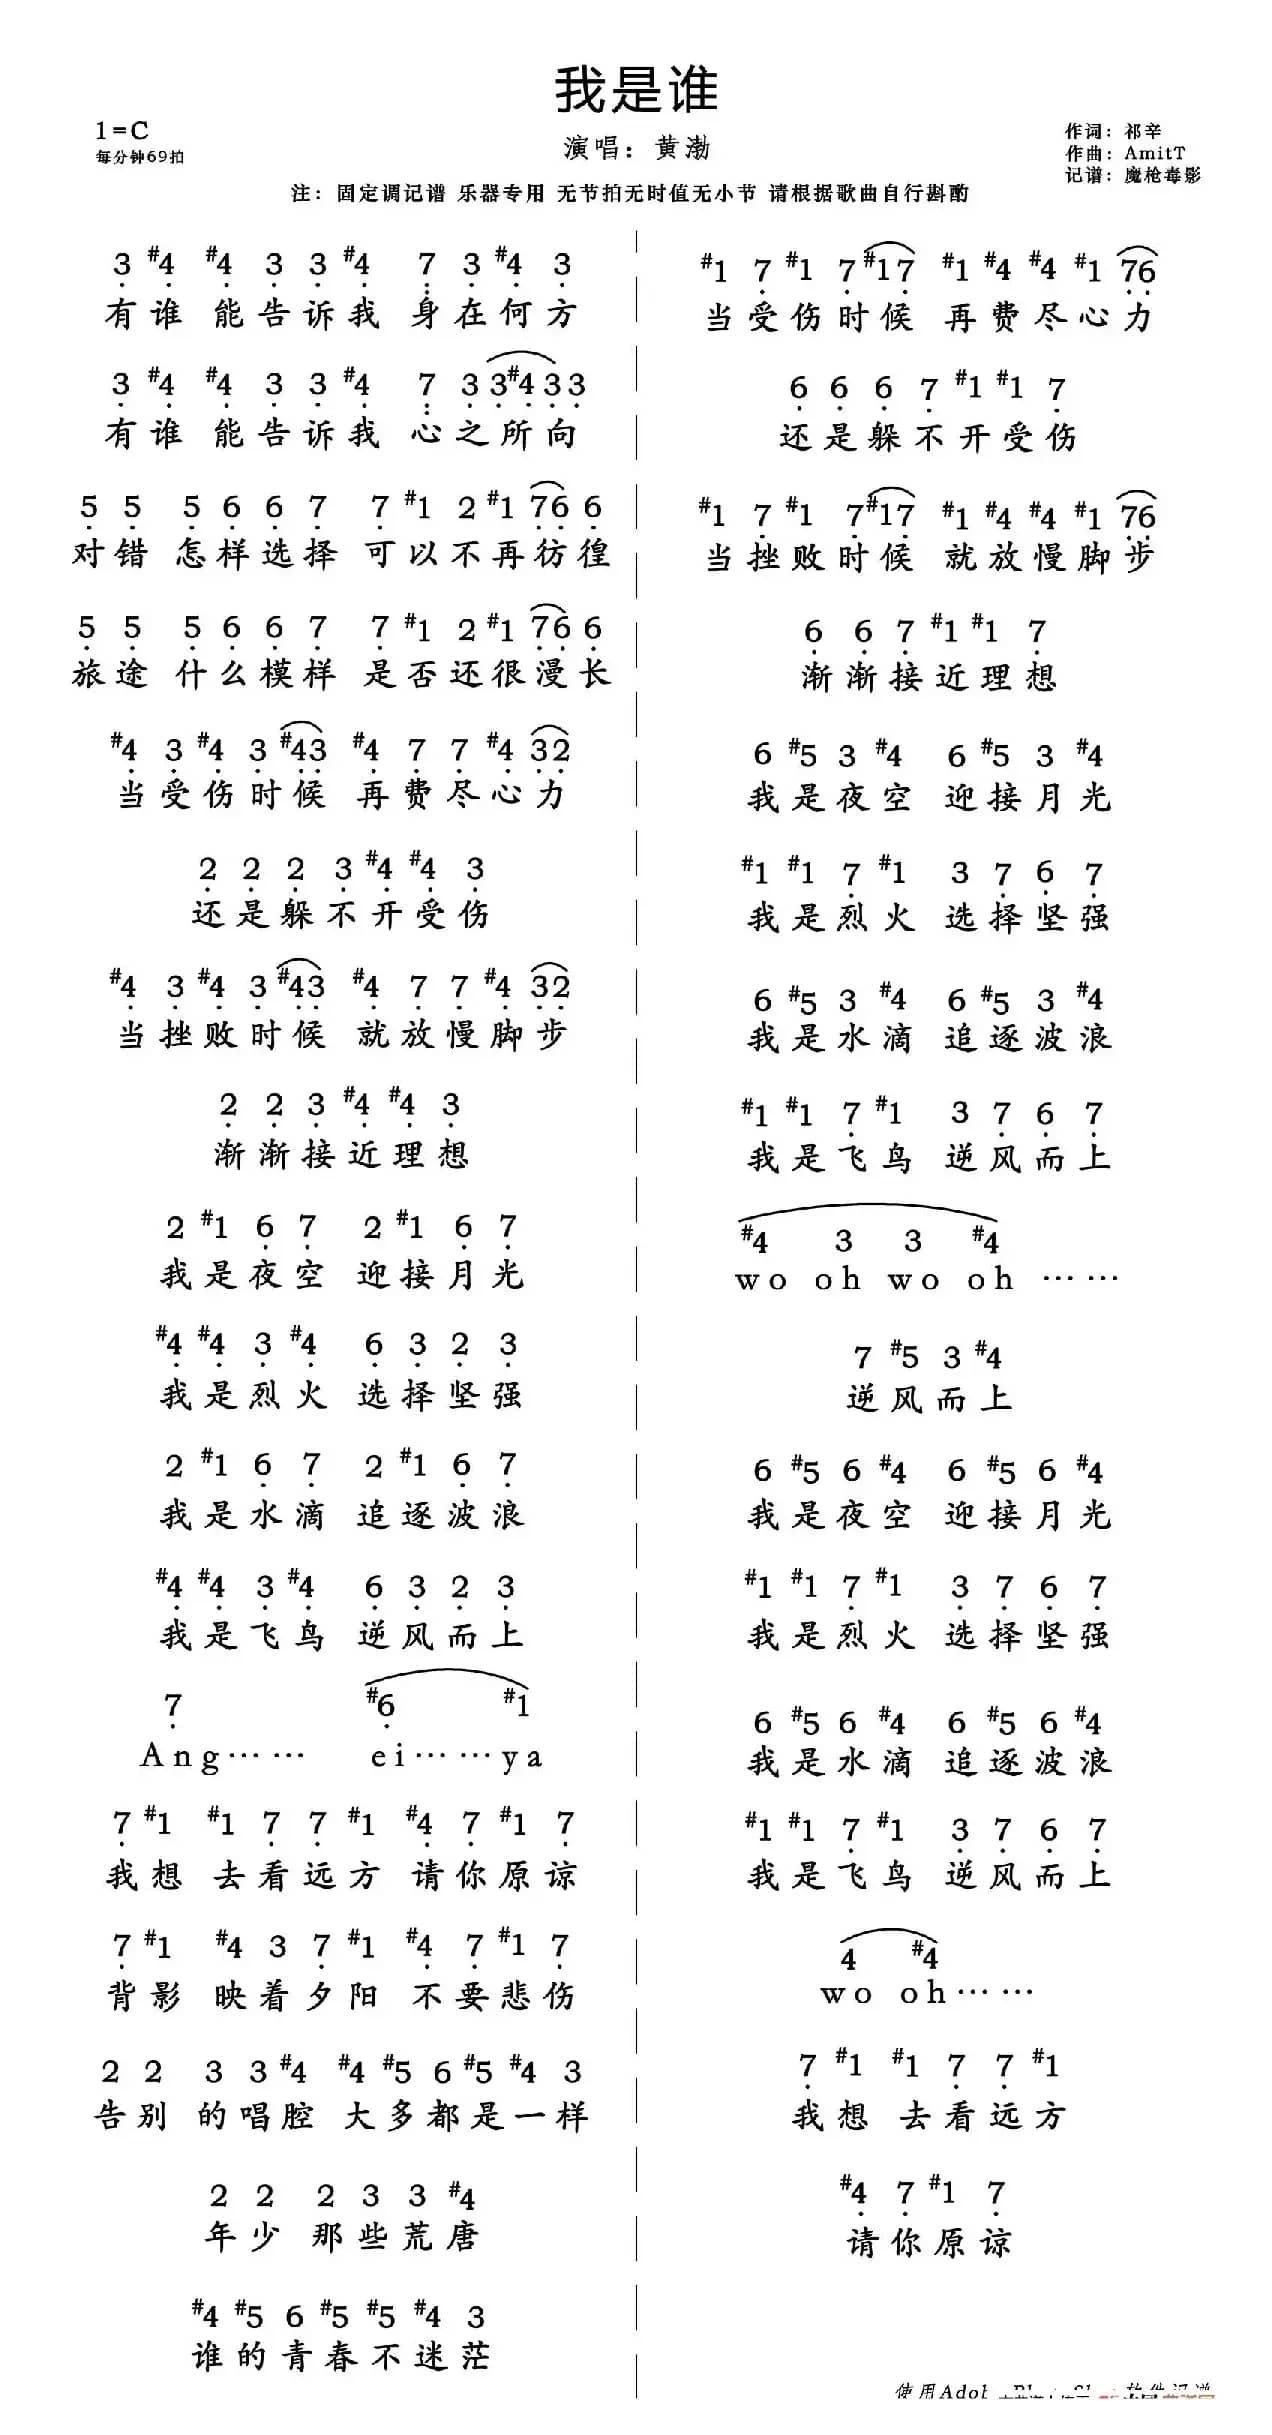 我是谁
1=C
演唱：黄渤
每分钟69拍
作词：祁辛
作曲：AmitT
记谱：魔枪毒影
注：固定调记谱 乐器专用 无节拍无时值无小节 请根据歌曲自行斟酌
3 #4 #4 3 3 #4 7 3 #4 3
有谁 能告诉我 身在何方
3 #4 #4 3 3 #4 7 3 3 #4 3 3
有谁 能告诉我 心之所向
5 5 5 6 6 7 7 #1 2 #1 76 6
对错 怎样选择 可以不再彷徨
5 5 5 6 6 7 7 #1 2 #1 76 6
旅途 什么模样 是否还很漫长
#4 3 #4 3 #43 #4 7 7 #4 32
当受伤时候 再费尽心力
2 2 2 3 #4 #4 3
还是躲不开受伤
#4 3 #4 3 #43 #4 7 7 #4 32
当挫败时候 就放慢脚步
2 2 3 #4 #4 3
渐渐接近理想
2 #1 6 7 2 #1 6 7
我是夜空 迎接月光
#4 #4 3 #4 6 3 2 3
我是烈火 选择坚强
2 #1 6 7 2 #1 6 7
我是水滴 追逐波浪
#4 #4 3 #4 6 3 2 3
我是飞鸟 逆风而上
7 #6 #1
Ang…… ei……ya
7 #1 #1 7 7 #1 #4 7 #1 7
我想 去看远方 请你原谅
7 #1 #4 3 7 #1 #4 7 #1 7
背影 映着夕阳 不要悲伤
2 2 3 3 #4 #4 #5 6 #5 #4 3
告别 的唱腔 大多都是一样
2 2 2 3 3 #4
年少 那些荒唐
#4 #5 6 #5 #5 #4 3
谁的青春不迷茫
#1 7 #1 7 #17 #1 #4 #4 #1 76
当受伤时候 再费尽心力
6 6 6 7 #1 #1 7
还是躲不开受伤
#1 7 #1 7 #17 #1 #4 #4 #1 76
当挫败时候 就放慢脚步
6 6 7 #1 #1 7
渐渐接近理想
6 #5 3 #4 6 #5 3 #4
我是夜空 迎接月光
#1 #1 7 #1 3 7 6 7
我是烈火 选择坚强
6 #5 3 #4 6 #5 3 #4
我是水滴 追逐波浪
#1 #1 7 #1 3 7 6 7
我是飞鸟 逆风而上
#4 3 3 #4
wo oh wo oh ……
7 #5 3 #4
逆风而上
6 #5 6 #4 6 #5 6 #4
我是夜空 迎接月光
#1 #1 7 #1 3 7 6 7
我是烈火 选择坚强
6 #5 6 #4 6 #5 6 #4
我是水滴 追逐波浪
#1 #1 7 #1 3 7 6 7
我是飞鸟 逆风而上
4 #4
wo oh……
7 #1 #1 7 7 #1
我想 去看远方
#4 7 #1 7
请你原谅
使用